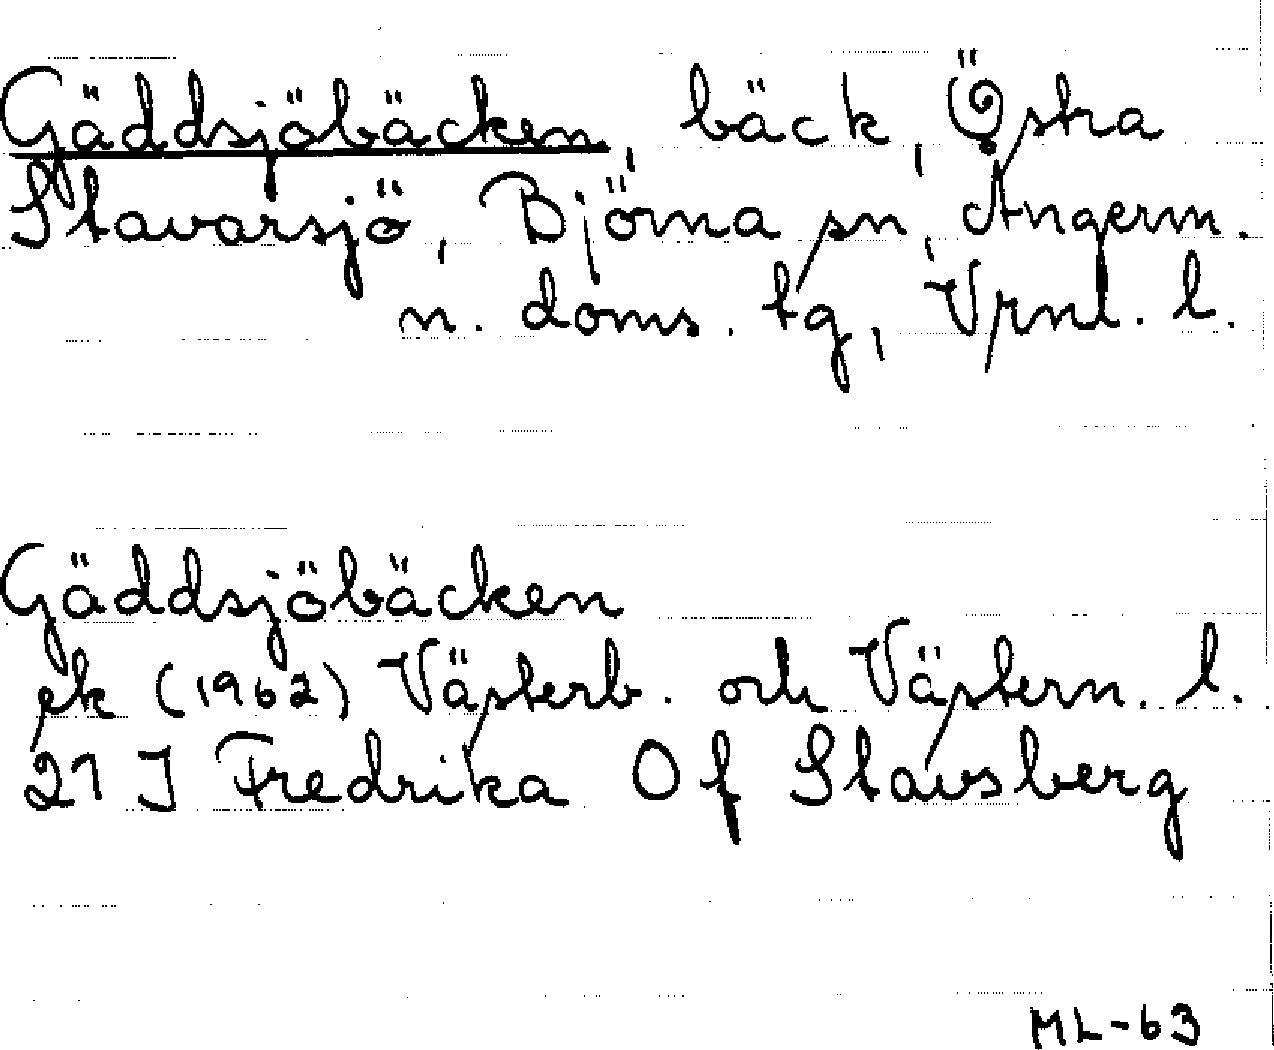 Gäddsjöbäcken, bäck, Östra
Stavarsjö, Björna sn, Ångerm.
n. doms. tg, Vrnl. l.
Gäddsjöbäcken
ek (1962) Västerb. och Västern. l.
21 J Fredrika 0 f Stavsberg
ML-63